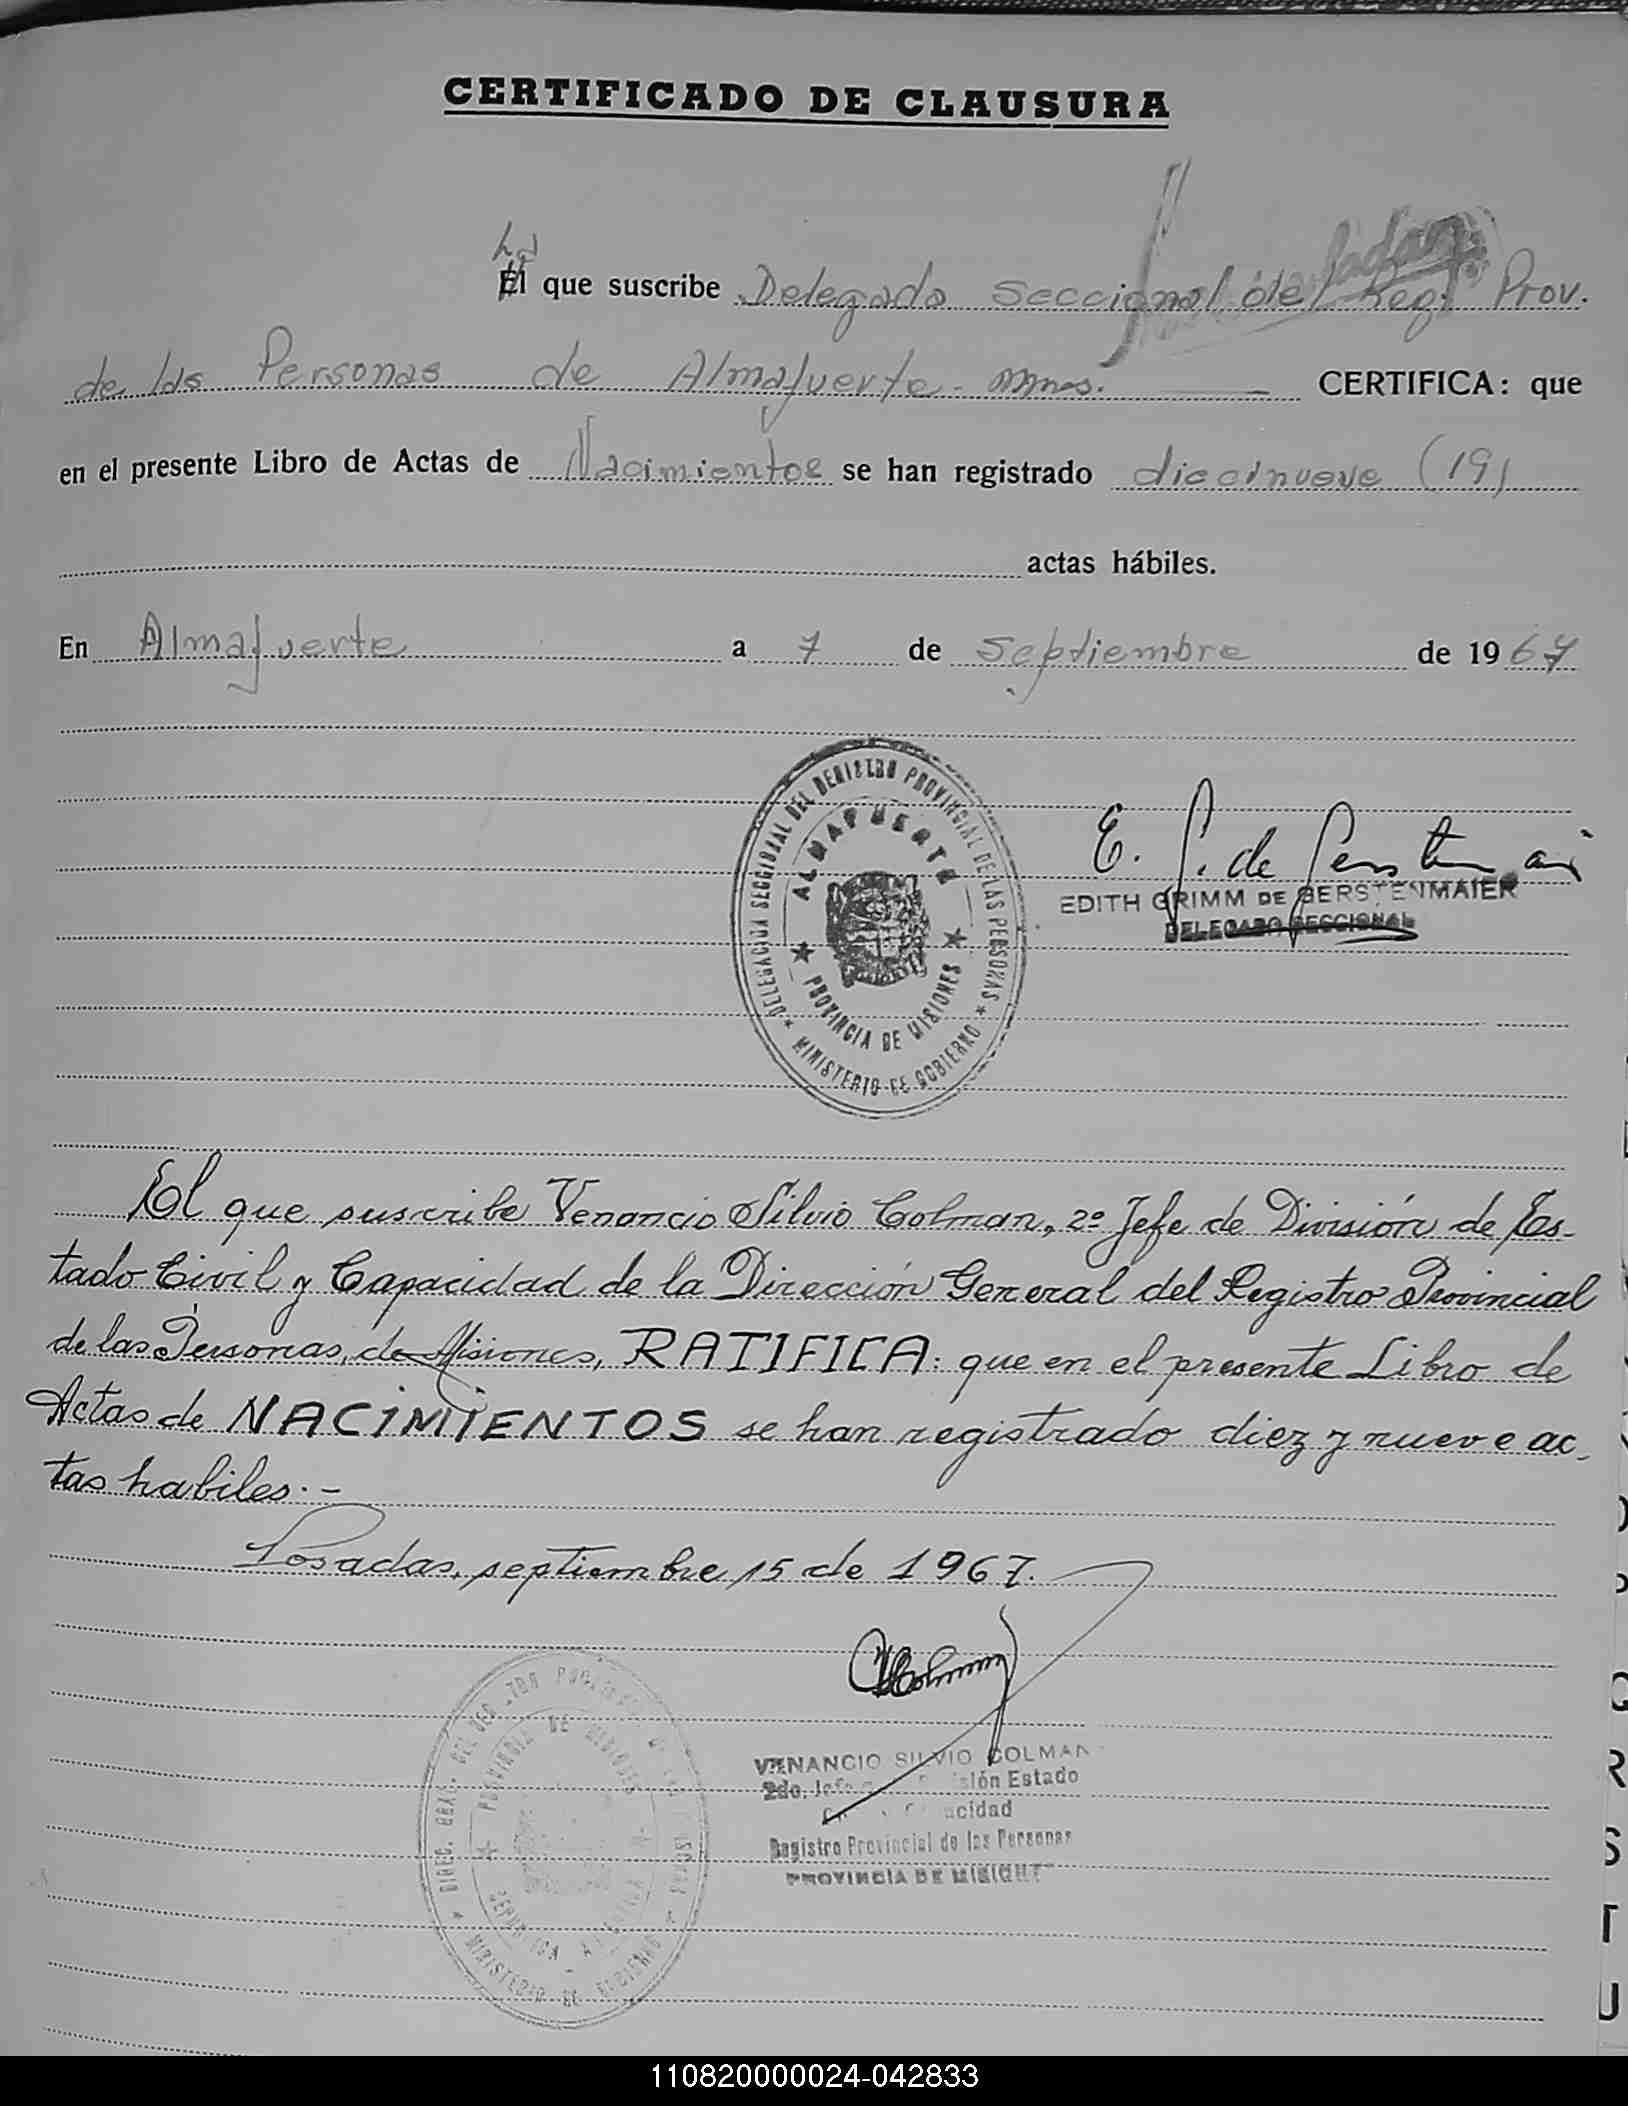 CERTIFICADO DE CLAUSURA
La
El que suscribe Delegada Seccional del Reg. Prov.
de las Personas de Almafuerte - Mnes. CERTIFICA: que
en el presente Libro de Actas de Nacimientos se han registrado diecinueve (19)
actas hábiles.
En Almafuerte a 7 de Septiembre de 1967
DELEGACION SECCIONAL DEL REGISTRO PROVINCIAL DE LAS PERSONAS
ALMAFUERTE
PROVINCIA DE MISIONES
MINISTERIO DE GOBIERNO
E. G. de Gerstenmaier
EDITH GRIMM DE GERSTENMAIER
DELEGADO SECCIONAL
El que suscribe Venancio Silvio Colman, 2º Jefe de División de Es-
tado Civil y Capacidad de la Dirección General del Registro Provincial
de las Personas, de Misiones, RATIFICA: que en el presente Libro de
Actas de NACIMIENTOS se han registrado diez y nueve ac-
tas habiles.-
Posadas, septiembre 15 de 1967.
VColman
VENANCIO SILVIO COLMAN
2do. Jefe División Estado
Capacidad
Registro Provincial de las Personas
PROVINCIA DE MISIONES
DIREC. GRAL. DEL REGISTRO PROVINCIAL DE LAS PERSONAS
PROVINCIA DE MISIONES
REPUBLICA ARGENTINA
MINISTERIO DE GOBIERNO
G
R
S
T
U
110820000024-042833